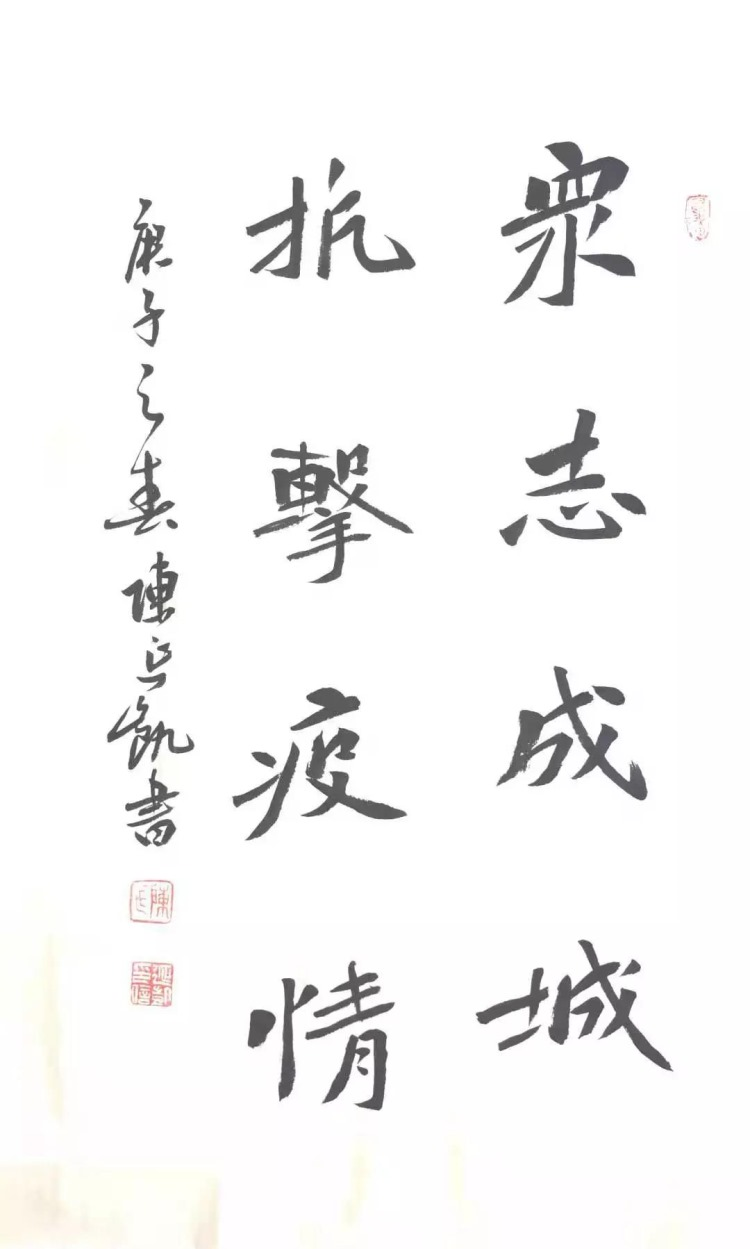 眾志成城
抗擊疫情
庚子之春陳凱書
陳氏